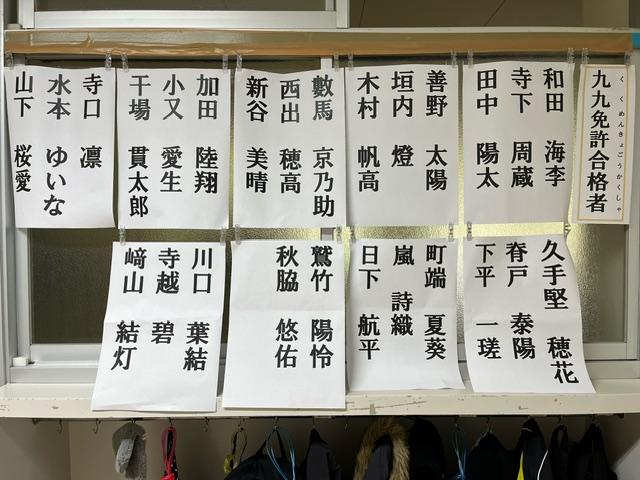 九九免許合格者
くくめんきょごうかくしゃ
和田 海李
寺下 周蔵
田中 陽太
善野 太陽
垣内 燈
木村 帆高
數馬 京乃助
西出 穂高
新谷 美晴
加田 陸翔
小又 愛生
干場 貫太郎
寺口 凛
水本 ゆいな
山下 桜愛
久手堅 穂花
脊戸 泰陽
下平 一瑳
町端 夏葵
嵐 詩織
日下 航平
鷲竹 陽怜
秋脇 悠佑
川口 葉結
寺越 碧
﨑山 結灯